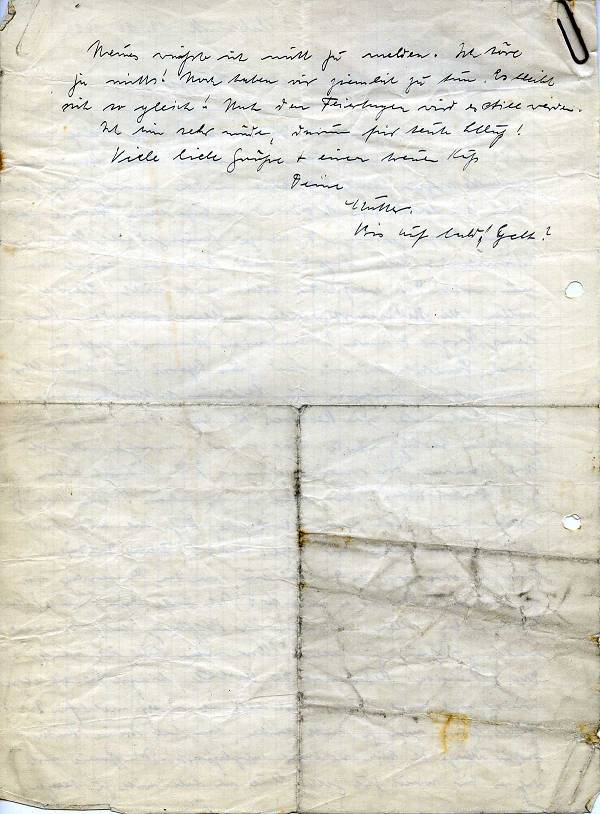 Neues wüßte ich nicht zu melden. Ich höre
ja nichts! Noch haben wir ziemlich zu tun. Es bleibt
sich so gleich! Nach den Feiertagen wird es stille werden.
Ich bin sehr müde, darum für heute Schluß!
Viele liebe Grüße + einen Kuß
Deine
Mutter.
Bis auf bald! Gelt?